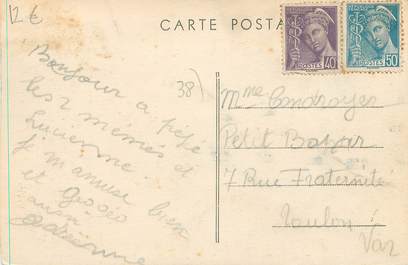 12 €
CARTE POSTA
POSTES 40
POSTES 50
38)
Bonjour a pépé
les 2 mémés et
Lucienne.
Je m'amuse bien
et
aussi
Mme
Petit Bazar
7 Rue Fraternité
Toulon
Var